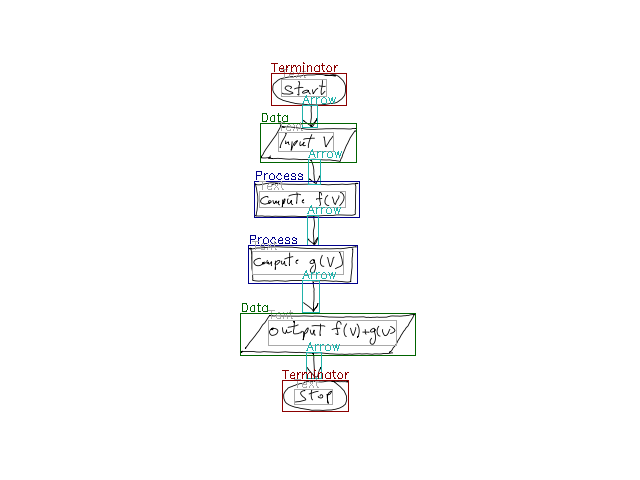 Terminator
Text
Start
Arrow
Data
Text
Input V
Arrow
Process
Text
Compute f(V)
Arrow
Process
Text
Compute g(V)
Arrow
Data
Text
Output f(V)+g(V)
Arrow
Terminator
Text
Stop